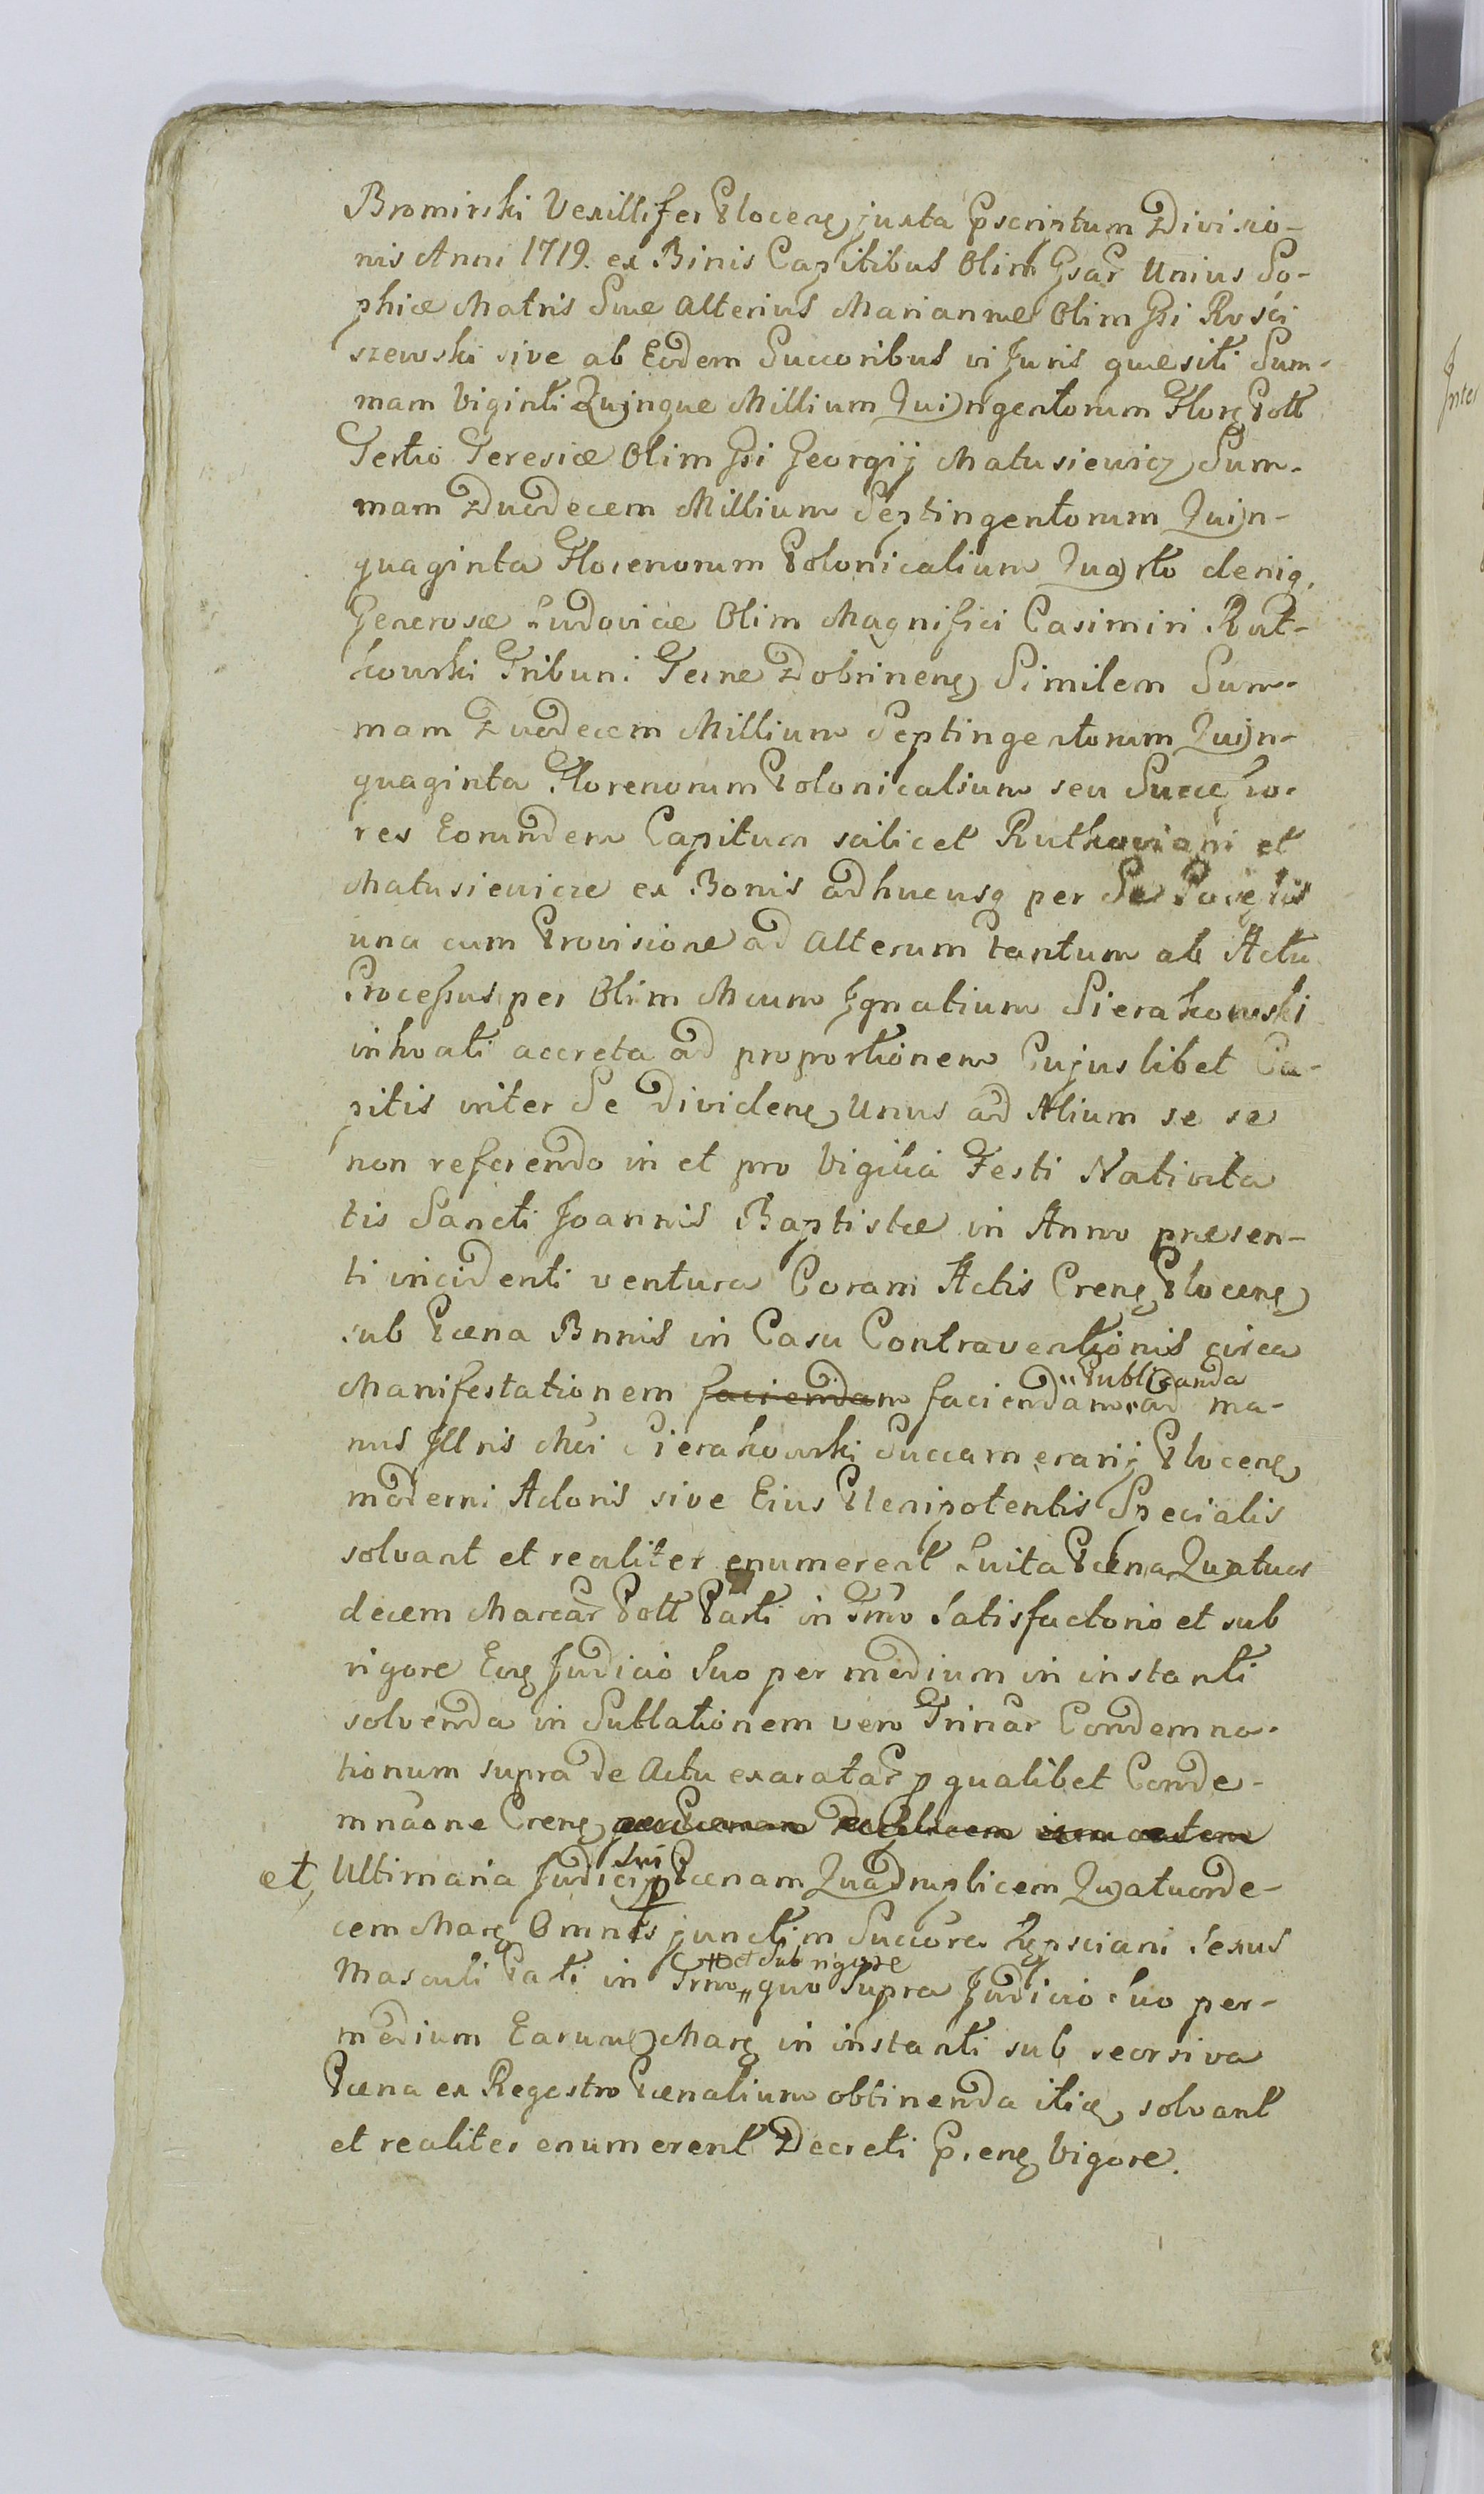 Bromirski Vexillifer Plocen juxta Pscriptum Divisio-
nis Anni 1719. ex Binis Capitibus Olim Gsar Unius So-
phiæ Matris Suæ alterius Mariannæ Olim Gsi Rości
szewski sive ab Eodem Succoribus vi Juris quæsiti Sum-
mam Viginti Quinque Millium Quingentorum Flor Poll
Tertio Teresiæ Olim Gsi Georgij Matusiewicz Sum-
mam Duodecem Millium Septingentorum Quin-
quaginta Florenorum Polonicalium Quarto deniq.
Generosæ Ludovicæ Olim Magnifici Casimiri Rut-
kowski Tribuni Terræ Dobrinen Similem Sum-
mam Duodecem Millium Septingentorum Quin-
quaginta Florenorum Polonicalium seu Succeso-
res Eorundem Capitum scilicet Rutkoviani et
Matusieviciæ ex Bonis adhucusq per Se
una cum Provisione ad alterum tantum ab Actu
Processus per Olim Mcum Ignatium Sierakowski
inhoati accreta ad proportionem Cujuslibet Ca-
pitis inter Se Dividen Unus ad Alium se se
non referendo in et pro Vigilia Festi Nativita
tis Sancti Joannis Baptistæ in Anno præsen-
ti incidenti ventura Coram Actis Cren Plocen
sub Pœna Bnnis in Casu Contraventionis circa
Manifestationem faciendam faciendam ad "Publicanda ma-
nus Illris Mci Sierakowski Succamerarij Plocen
moderni Actoris sive Eius Plenipotentis Specialis
solvant et realiter enumerent Luita Pœna Quatuor
decem Marcar Poll Parti in Tmo Satisfactorio et sub
rigore Eoq Judicio Suo per medium in instanti
solvenda in Sublationem vero Trinar Condemna-
tionum supra de Actu exaratar p qualibet Conde-
mnaone Cren
et Ultimaria Judicij Sui p Pœnam Quadruplicem Quatuorde-
cem Marc Omnes junctim Succores Sexus
Masculi Parti in Trmo " et Sub rigore quo Supra Judicio Suo per-
medium Earum Marc in instanti sub seorsiva
Pœna ex Regestro Pœnalium obtinenda solvant
et realiter enumerent Decreti Pren Vigore.